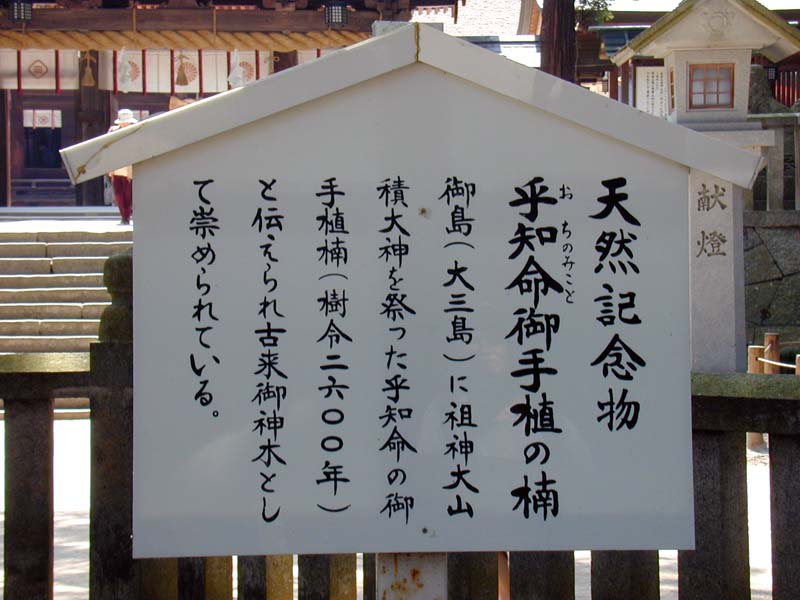 天然記念物
おちのみこと
乎知命御手植の楠
御島(大三島)に祖神大山
積大神を祭った乎知命の御
手植楠(樹令二六〇〇年)
と伝えられ古来御神木とし
て崇められている。
献燈